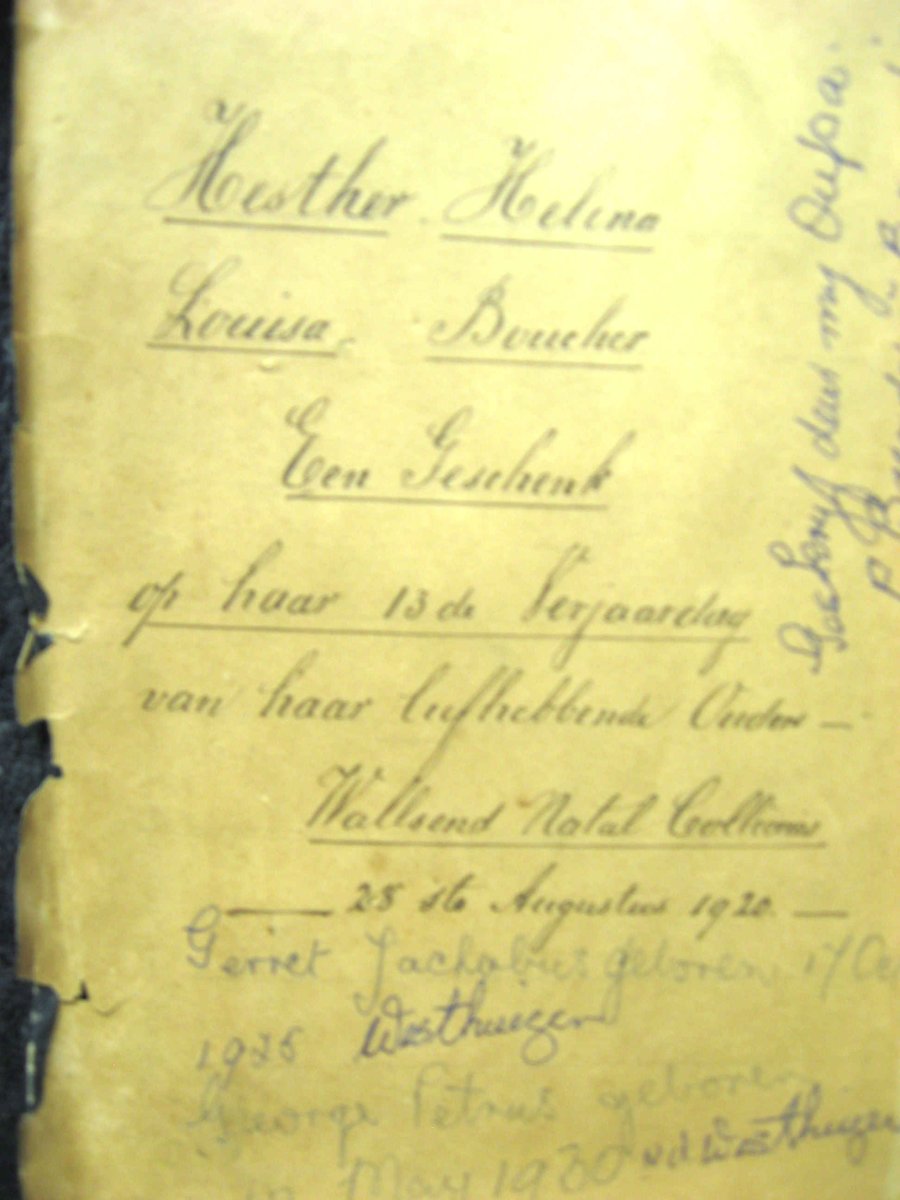 Hesther Helena
Louisa Boucher
Een Geschenk
op haar 13de Verjaardag
van haar liefhebbende Ouders —
Wallsend Natal Collieries
— 28ste Augustus 1920. —
Gerret Jackobus geboren 17
Westhuizen
George Petrus geboren
in May 1930 v.d. Westhuizen
deur my Oupa